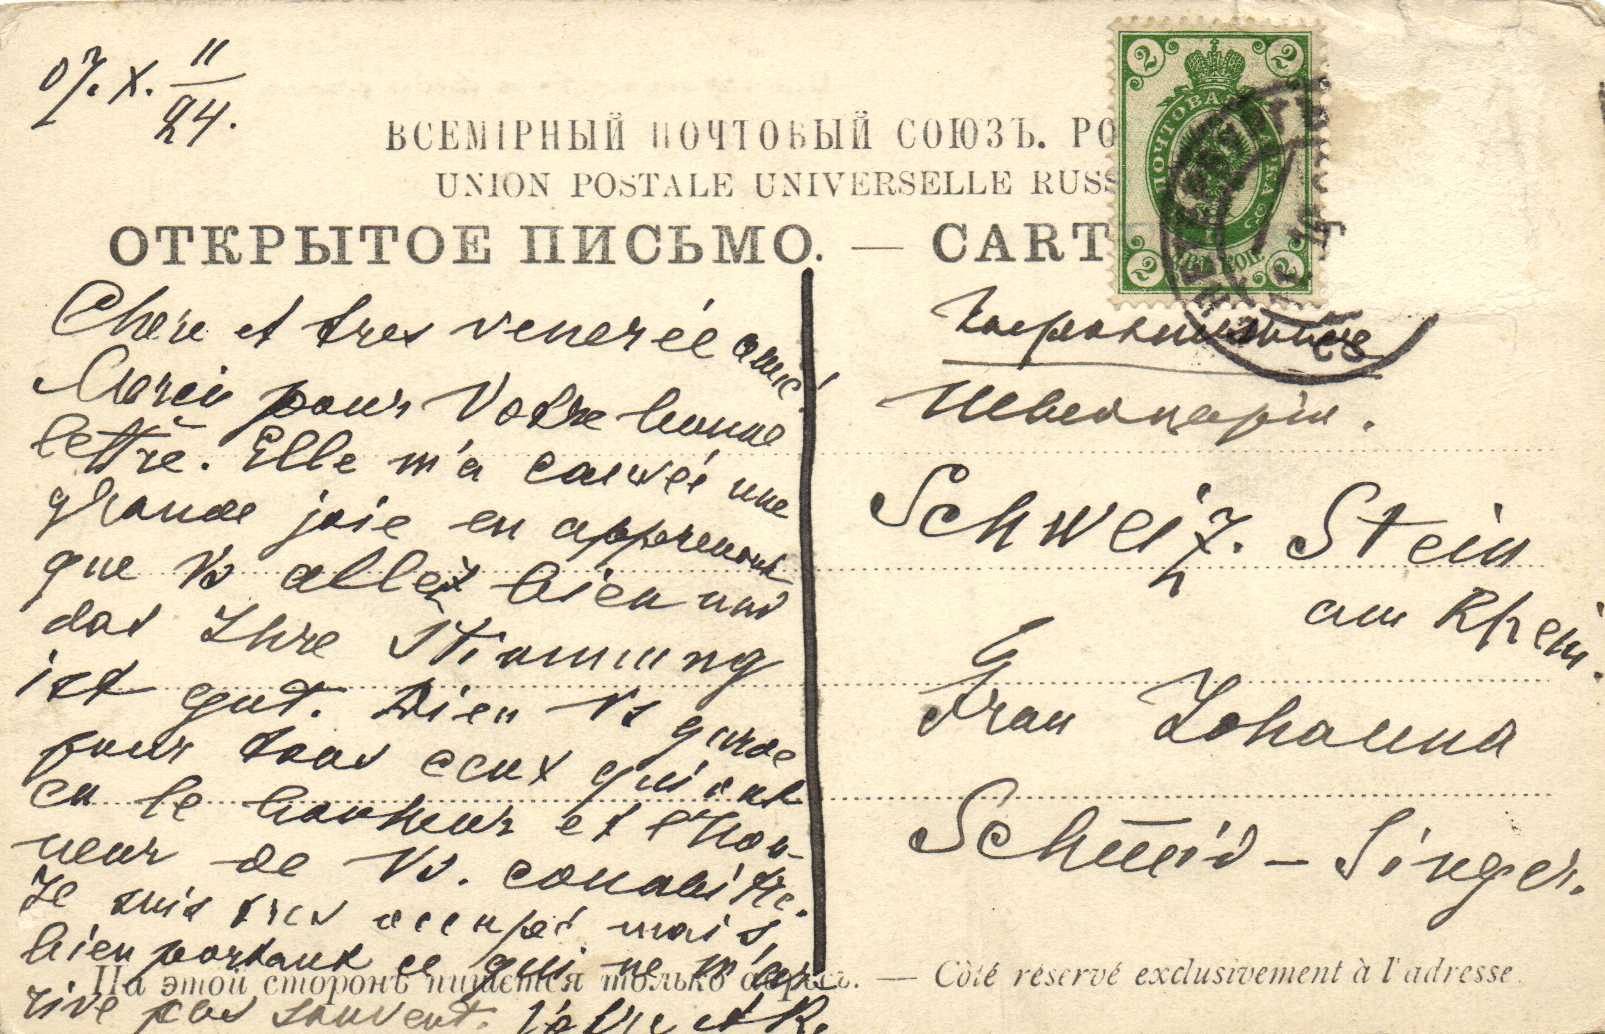 07. X. 11/24.
ВСЕМІРНЫЙ ПОЧТОВЫЙ СОЮЗЪ. РО
UNION POSTALE UNIVERSELLE RUSS
ОТКРЫТОЕ ПИСЬМО. — CART
2 2
ПОЧТОВАЯ МАРКА
2 2
Chere et tres venerée amie!
Merci pour Votre bonne
lettre. Elle m'a causée une
grande joie en apprenant
que Vs allez bien und
das Ihre Stimmung
ist gut. Dieu Vs garde
pour tous ceux qui ont
eu le bonheur et l'hon-
neur de Vs. connaitre.
Je suis tres occupé mais,
bien portant ce qui ne m'ar-
rive pas souvent.
Швейцарія.
Schweiz. Stein
am Rhein.
Frau Johanna
Schmid - Singer.
На этой сторонѣ пишется только адресъ. — Côté réservé exclusivement à l'adresse.